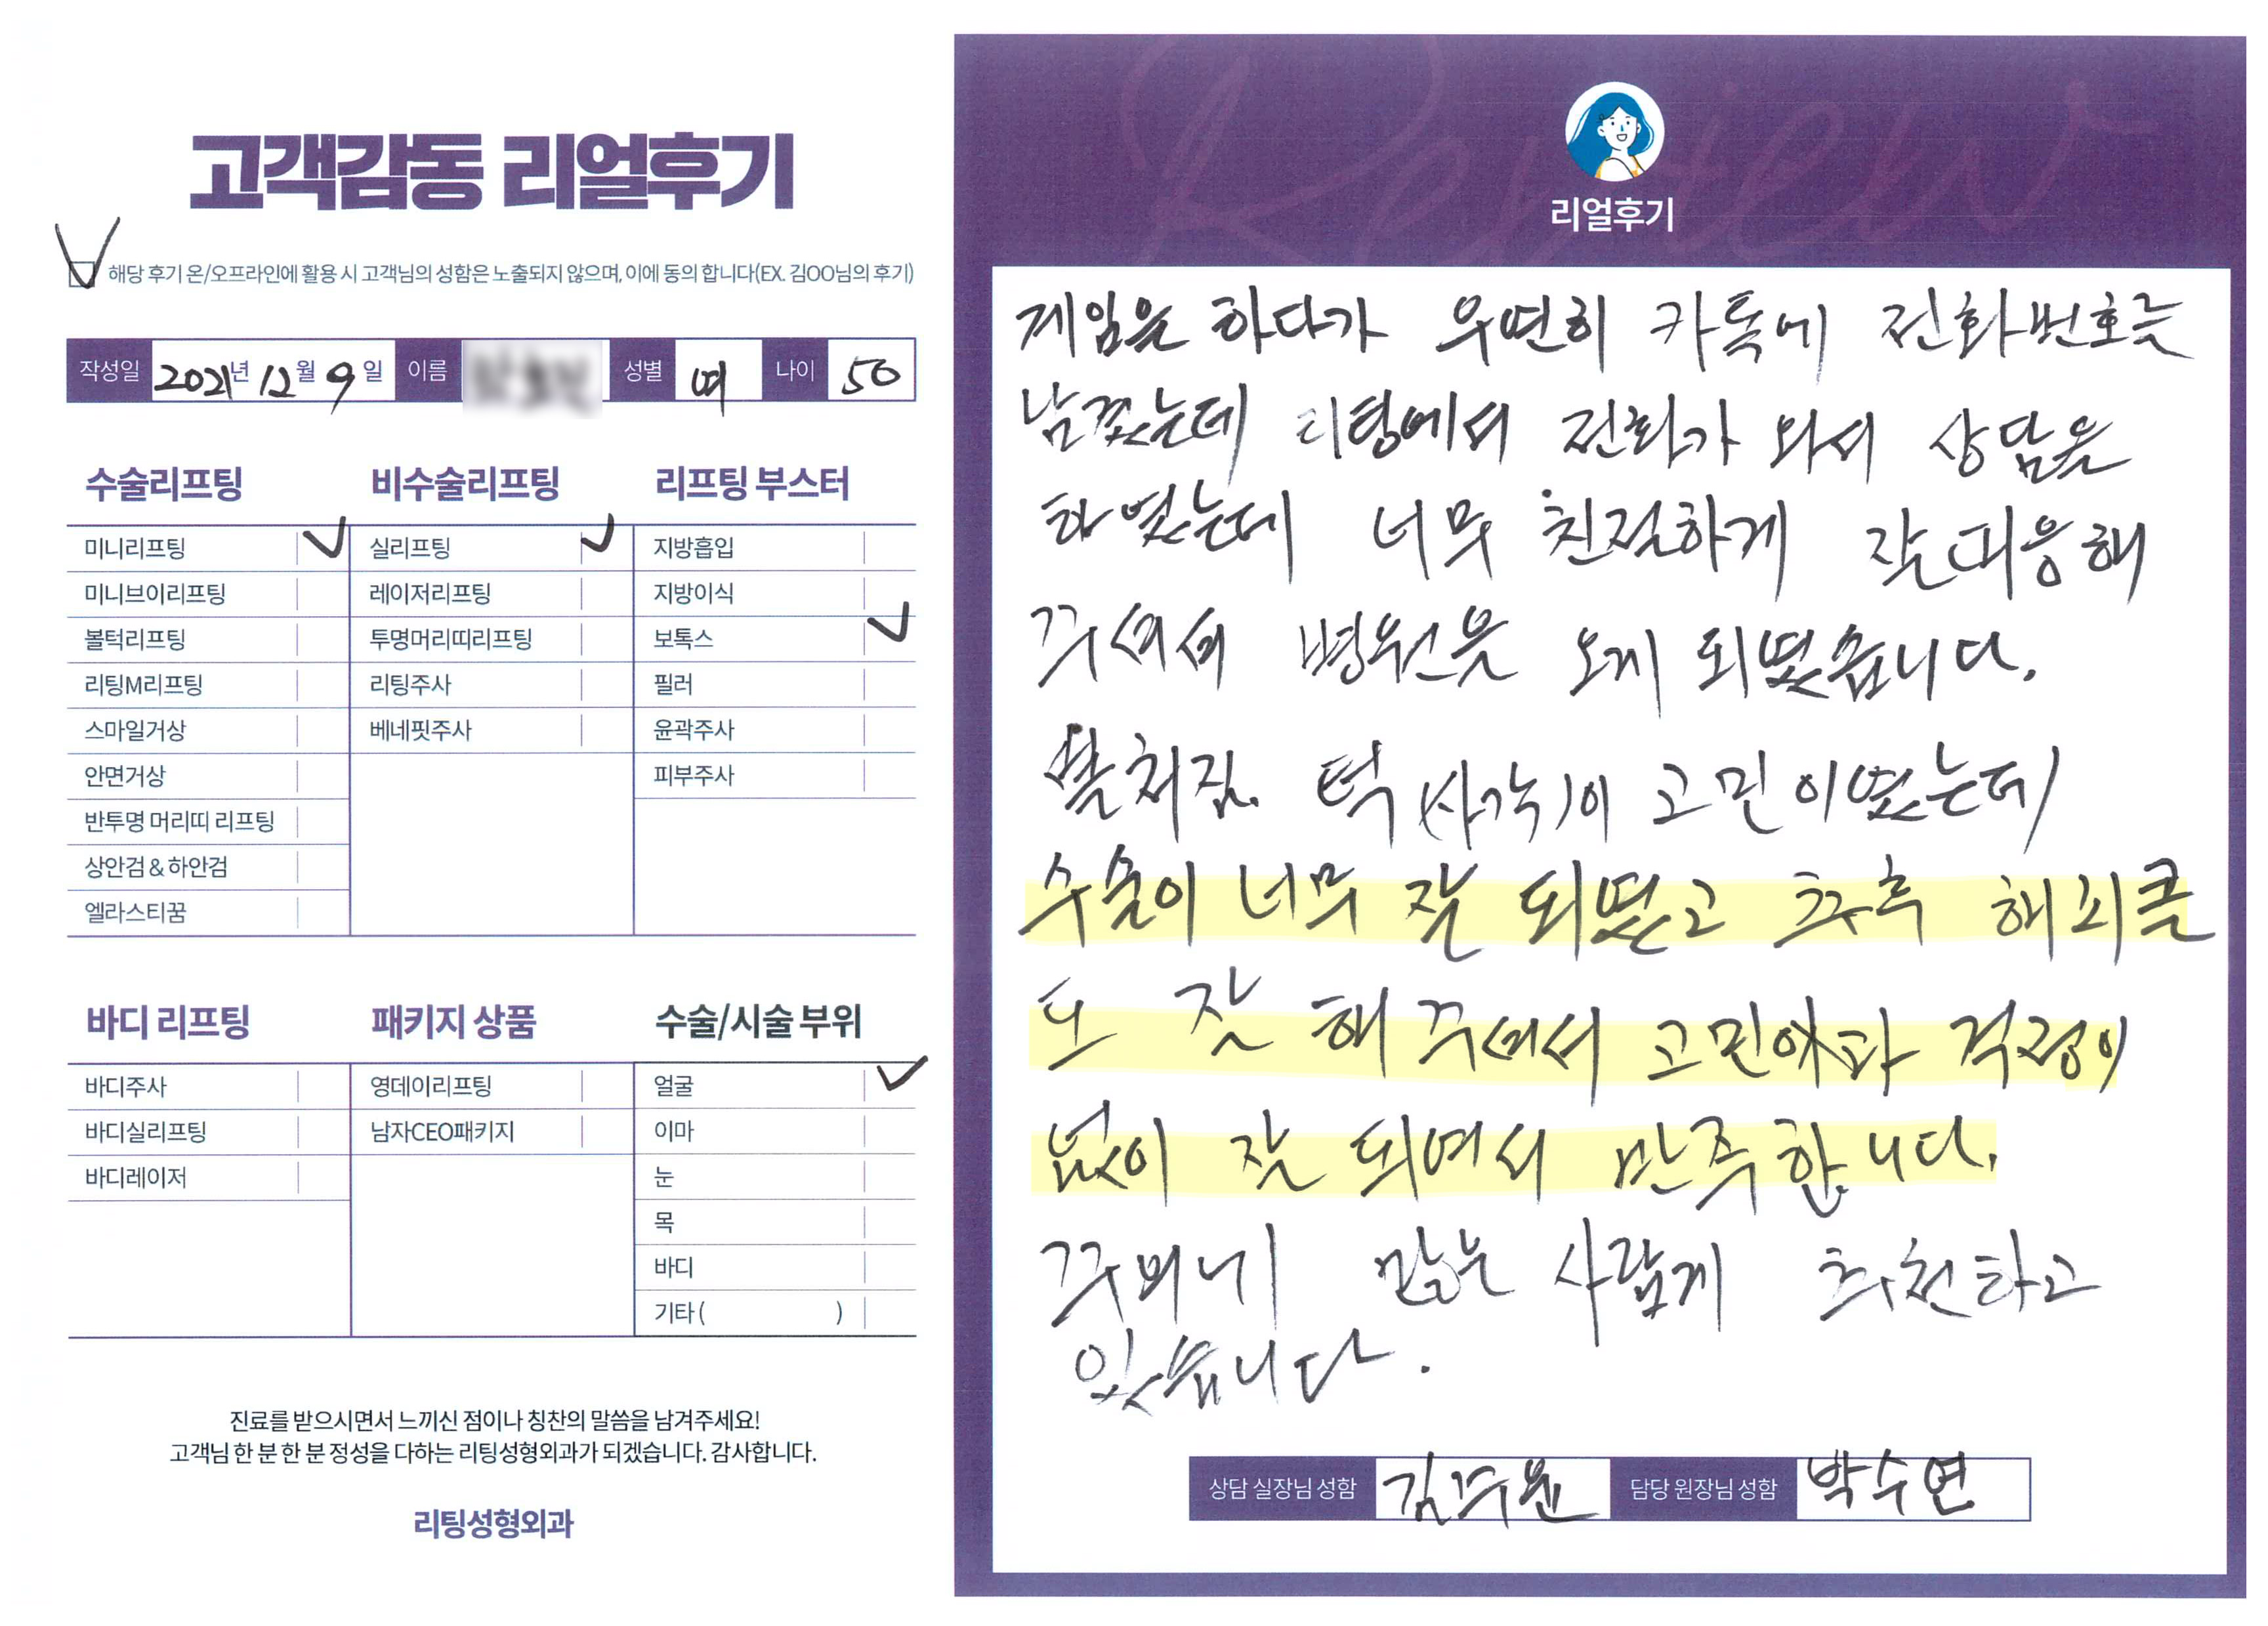 고객감동 리얼후기
해당 후기 온/오프라인에 활용 시 고객님의 성함은 노출되지 않으며, 이에 동의 합니다(EX. 김OO님의 후기)
작성일 2021년 12월 9일 이름 성별 여 나이 50
수술리프팅
미니리프팅
미니브이리프팅
볼턱리프팅
리팅M리프팅
스마일거상
안면거상
반투명 머리띠 리프팅
상안검 & 하안검
엘라스티꿈
비수술리프팅
실리프팅
레이저리프팅
투명머리띠리프팅
리팅주사
베네핏주사
리프팅 부스터
지방흡입
지방이식
보톡스
필러
윤곽주사
피부주사
바디 리프팅
바디주사
바디실리프팅
바디레이저
패키지 상품
영데이리프팅
남자CEO패키지
수술/시술 부위
얼굴
이마
눈
목
바디
기타 ( )
진료를 받으시면서 느끼신 점이나 칭찬의 말씀을 남겨주세요!
고객님 한 분 한 분 정성을 다하는 리팅성형외과가 되겠습니다. 감사합니다.
리팅성형외과
Review
리얼후기
게임을 하다가 우연히 카톡에 전화번호를
남겼는데 리팅에서 전화가 와서 상담을
하였는데 너무 친절하게 잘 대응해
주셔서 병원을 오게 되었습니다.
볼처짐. 턱(사각)이 고민이였는데
수술이 너무 잘 되였고 추후 해피콜
도 잘 해 주셔서 고민이 걱정이
없이 잘 되여서 만족합니다.
주위에 많은 사람게 추천하고
있습니다.
상담 실장님 성함 김 담당 원장님 성함 박수연